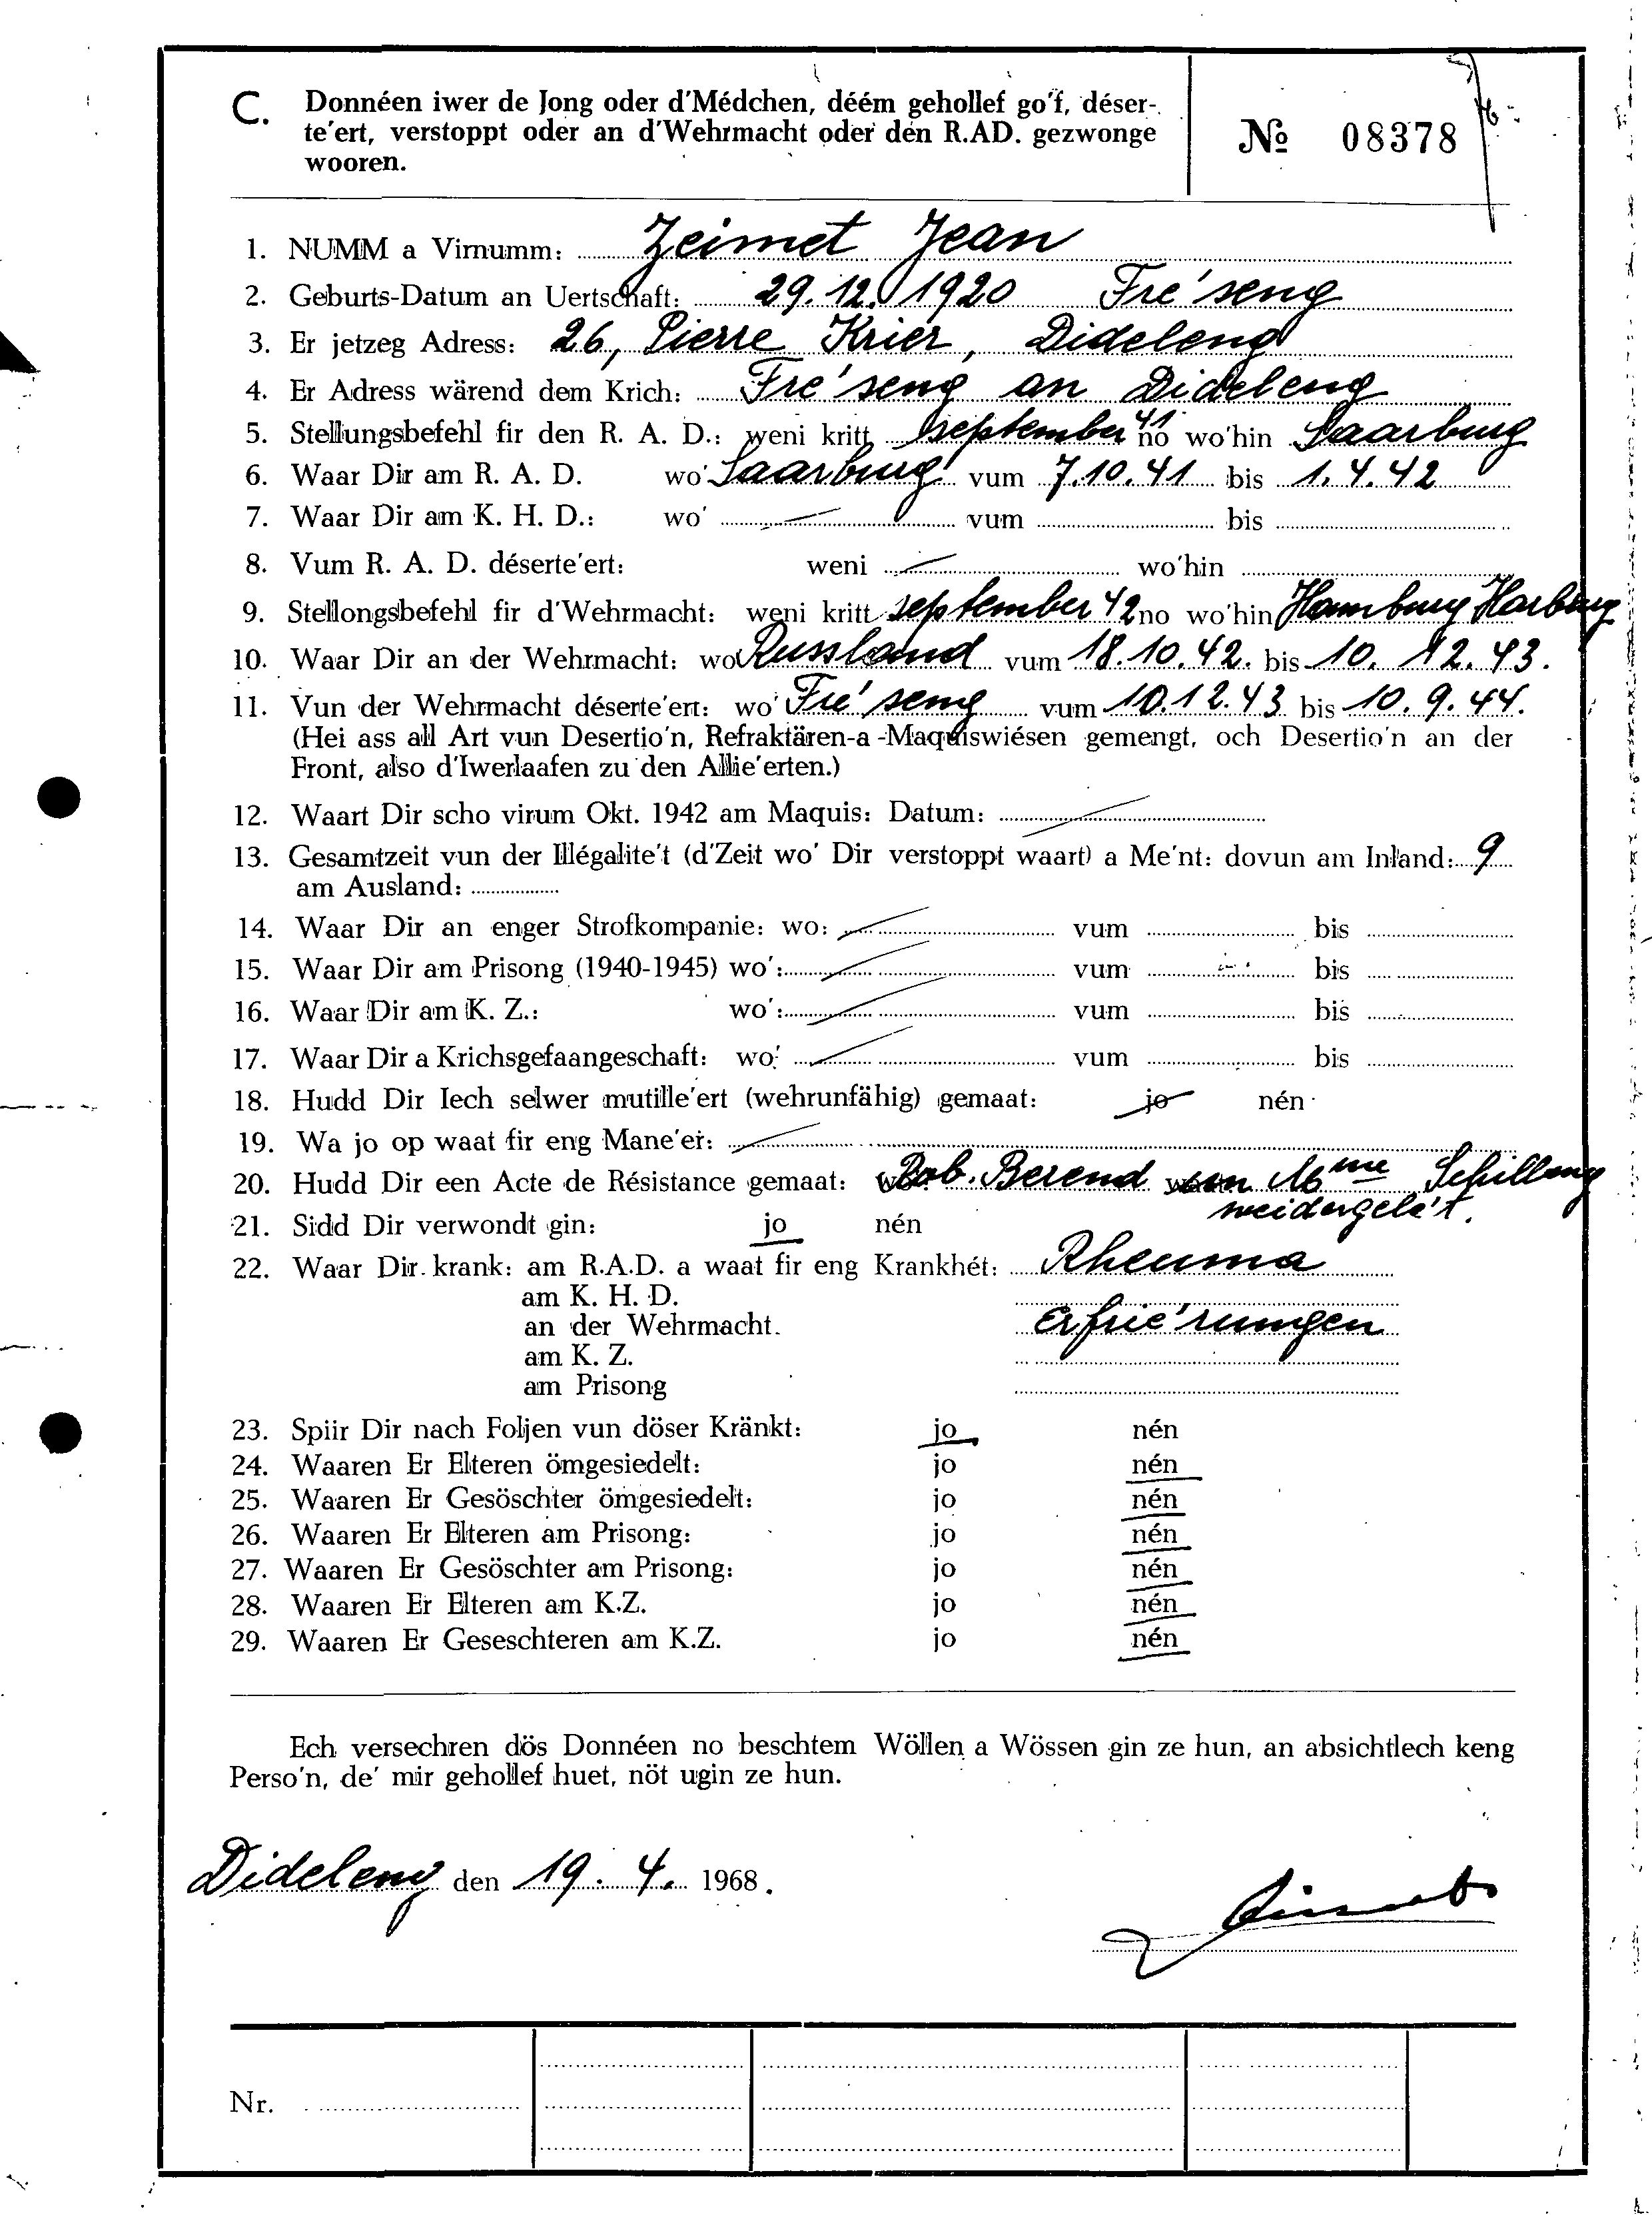 C. Donnéen iwer de Jong oder d'Médchen, déém gehollef go'f, déser-
te'ert, verstoppt oder an d'Wehrmacht oder den R.AD. gezwonge
wooren.
№ 08378
1. NUMM a Virnumm: Zeimet Jean
2. Geburts-Datum an Uertschaft: 29.12.1920 Fre'seng
3. Er jetzeg Adress: 26, Pierre Krier, Dideleng
4. Er Adress wärend dem Krich: Fre'seng an Dideleng
5. Stellungsbefehl fir den R. A. D.: weni kritt September 41 no wo'hin Saarburg
6. Waar Dir am R. A. D. wo' Saarburg vum 7.10.41 bis 1.4.42
7. Waar Dir am K. H. D.: wo' — vum bis
8. Vum R. A. D. déserte'ert: weni — wo'hin
9. Stellongsbefehl fir d'Wehrmacht: weni kritt september 42 no wo'hin Hamburg Harburg
10. Waar Dir an der Wehrmacht: wo Russland vum 18.10.42. bis 10. 12. 43.
11. Vun der Wehrmacht déserte'ert: wo' Fre'seng vum 10.12.43 bis 10.9.44.
(Hei ass all Art vun Desertio'n, Refraktären-a -Maquiswiésen gemengt, och Desertio'n an der
Front, also d'Iwerlaafen zu den Allie'erten.)
12. Waart Dir scho virum Okt. 1942 am Maquis: Datum: —
13. Gesamtzeit vun der Illégalite't (d'Zeit wo' Dir verstoppt waart) a Me'nt: dovun am Inland: 9
am Ausland:
14. Waar Dir an enger Strofkompanie: wo: — vum bis
15. Waar Dir am Prisong (1940-1945) wo': — vum bis
16. Waar Dir am K. Z.: wo': — vum bis
17. Waar Dir a Krichsgefaangeschaft: wo' — vum bis
18. Hudd Dir Iech selwer mutille'ert (wehrunfähig) gemaat: jo nén
19. Wa jo op waat fir eng Mane'er: —
20. Hudd Dir een Acte de Résistance gemaat: Bob. Berend Mme Schilling
weidergele't.
21. Sidd Dir verwondt gin: jo nén
22. Waar Dir krank: am R.A.D. a waat fir eng Krankhét: Rheuma
am K. H. D.
an der Wehrmacht. Erfrie'rungen
am K. Z.
am Prisong
23. Spiir Dir nach Foljen vun döser Kränkt: jo nén
24. Waaren Er Elteren ömgesiedelt: jo nén
25. Waaren Er Gesöschter ömgesiedelt: jo nén
26. Waaren Er Elteren am Prisong: jo nén
27. Waaren Er Gesöschter am Prisong: jo nén
28. Waaren Er Elteren am K.Z. jo nén
29. Waaren Er Geseschteren am K.Z. jo nén
Ech versechren dös Donnéen no beschtem Wöllen a Wössen gin ze hun, an absichtlech keng
Perso'n, de' mir gehollef huet, nöt ugin ze hun.
Dideleng den 19. 4. 1968.
Nr.